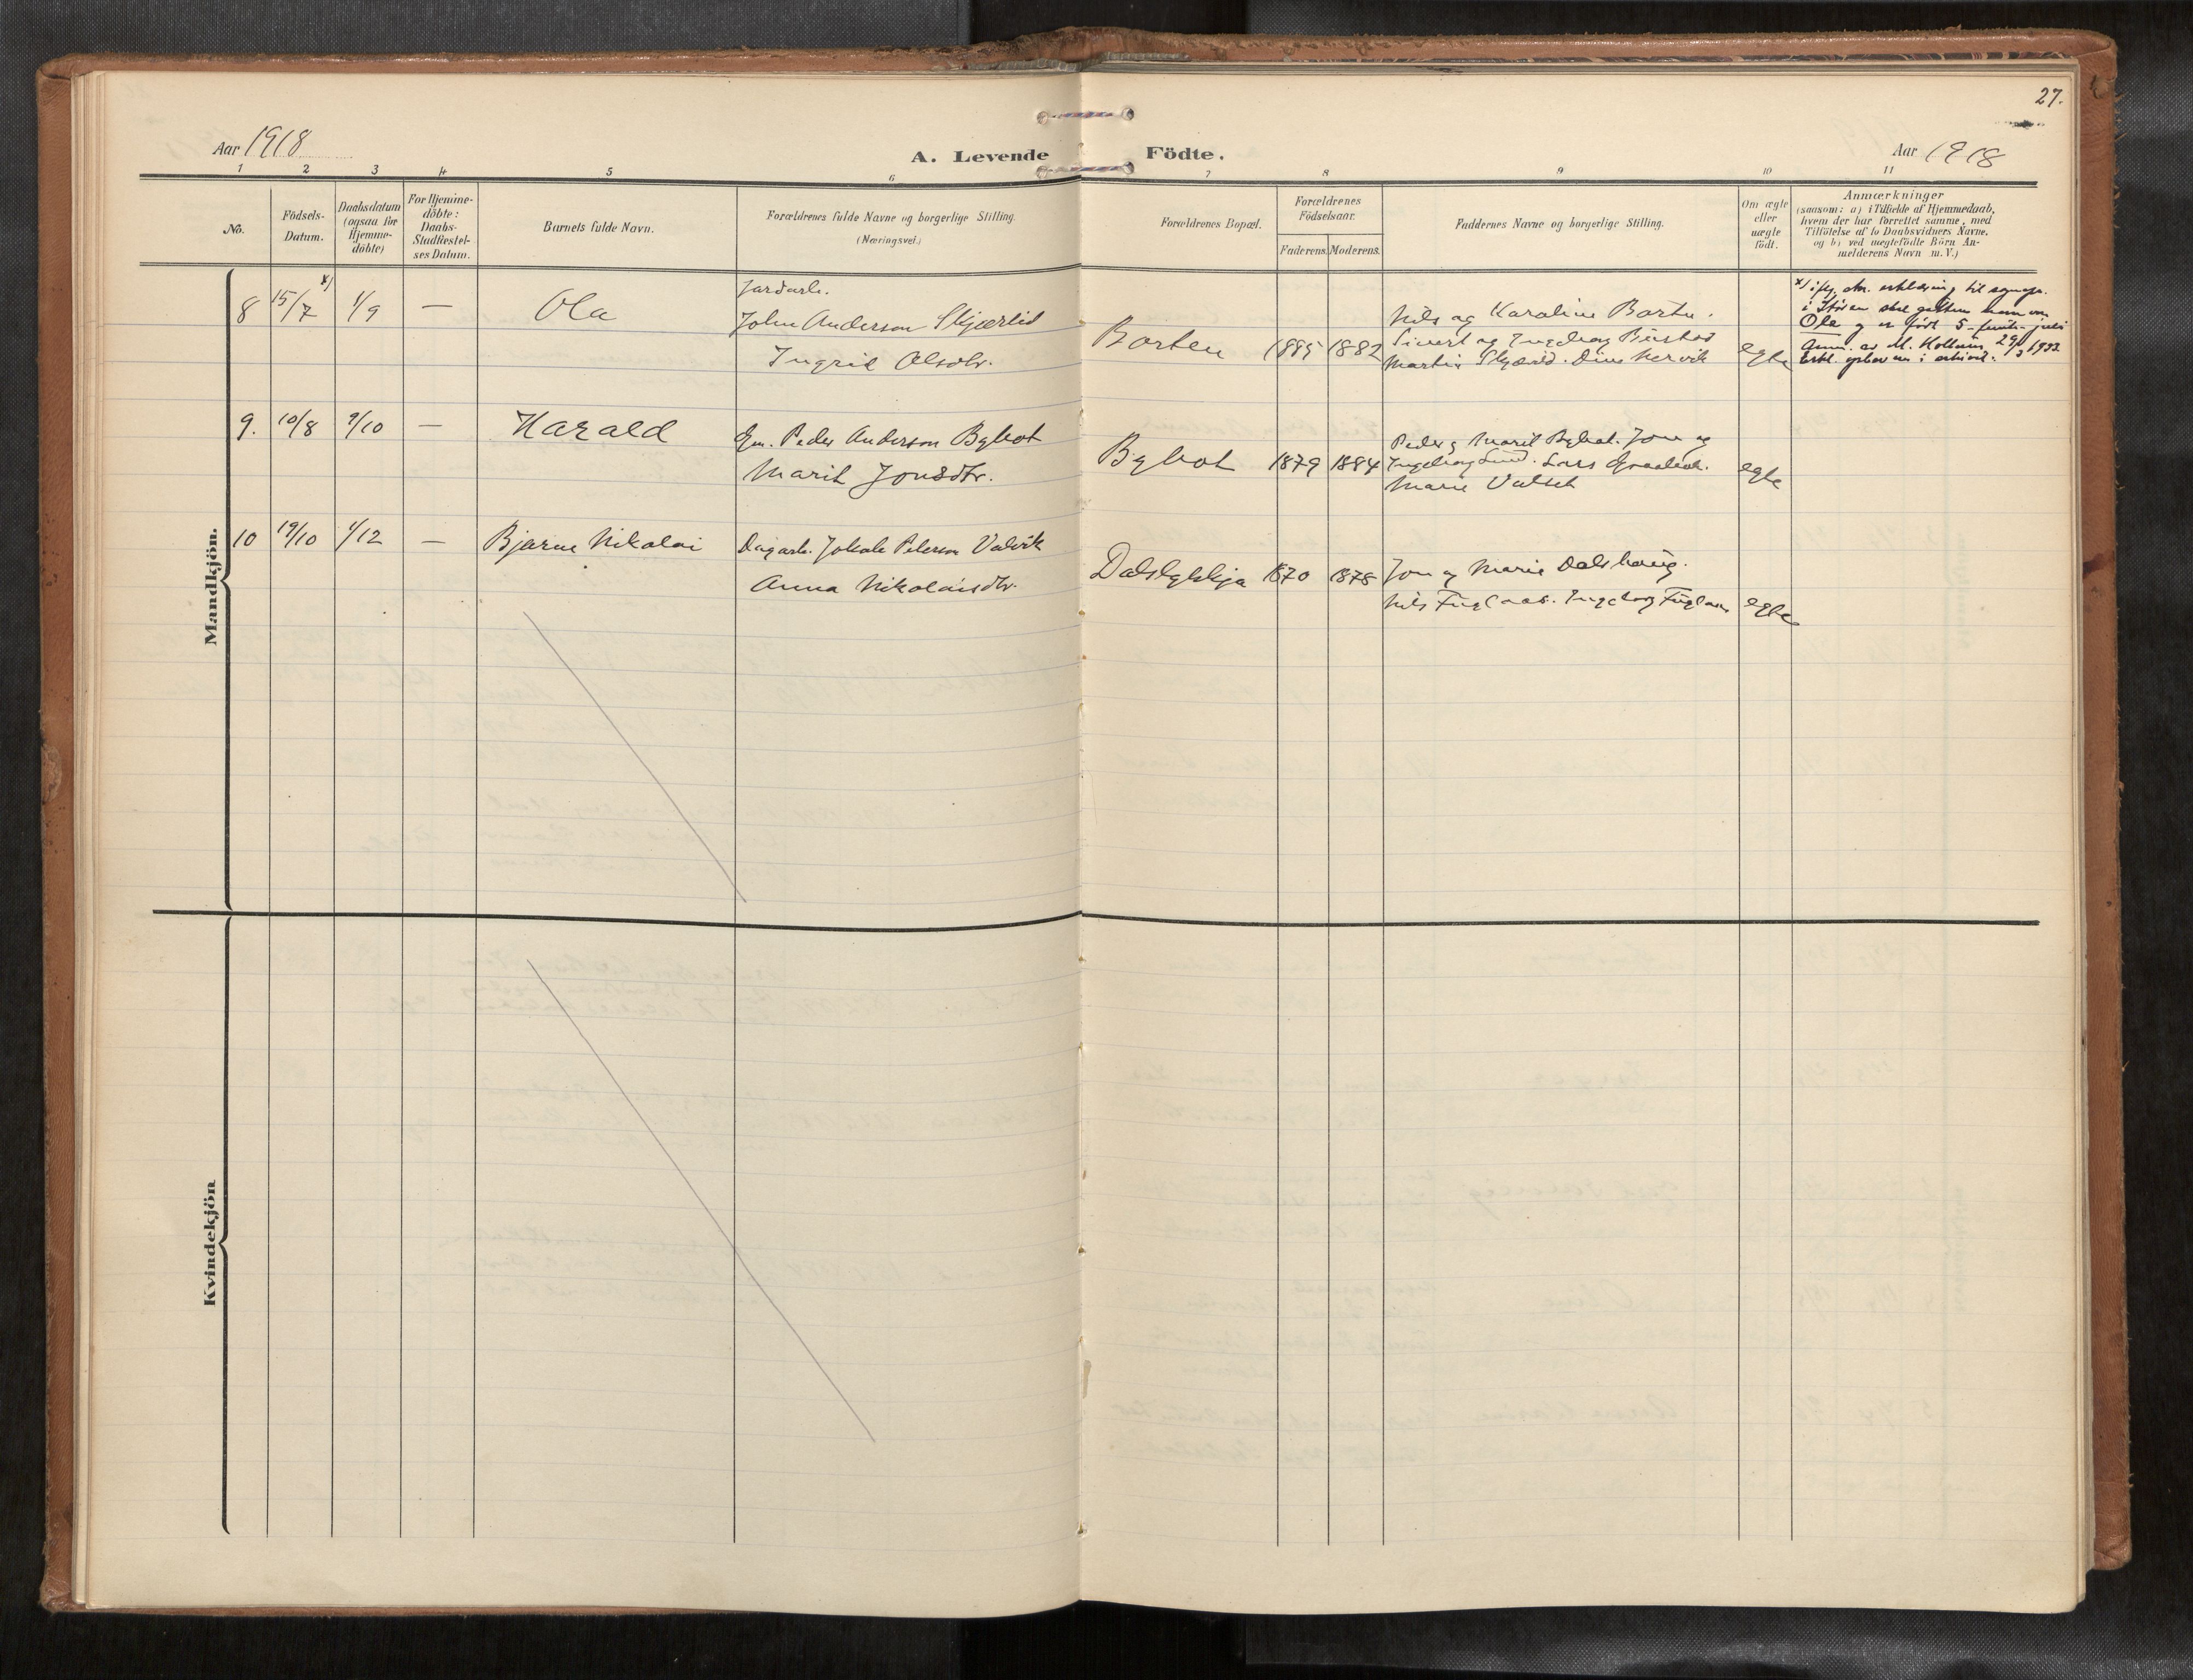 27.
Aar 1918
A. Levende Födte.
Aar 1918
1 2 3 4 5 6 7 8 9 10 11
No.
Födsels-
Datum.
Daabsdatum
(ogsaa for
Hjemme-
döbte)
For Hjemme-
döbte:
Daabs-
Stadfæstel-
ses Datum.
Barnets fulde Navn.
Forældrenes fulde Navne og borgerlige Stilling.
(Næringsvei.)
Forældrenes Bopæl.
Forældrenes
Födselsaar.
Faderens. Moderens.
Faddernes Navne og borgerlige Stilling.
Om ægte
eller
uægte
födt.
Anmærkninger
(saasom: a) i Tilfælde af Hjemmedaab,
hvem der har forrettet samme, med
Tilföielse af to Daabsvidners Navne,
og b) ved uægtefödte Börn An-
melderens Navn m.V.)
Mandkjön.
8 15/7 x) 1/9 — Ola
Jardarb.
John Anderson Skjærlid
Ingrid Olsdtr.
Borten 1885 1882
Nils og Karoline Borten.
Sivert og Ingeborg Burstad
Martin Skjærlid.
egte
x) iflg.
Ola og er født 5-femte-juli
9. 10/8 9/10 — Harald
Gm. Peder Anderson Bybot
Marit Jonsdtr.
Bybot 1879 1884
Peder og Marit Bybot. Jon og
Ingeborg Lund. Lars
Marie
egte
10 19/10 1/12 — Bjarne Nikolai
Dagarb. Peterson Valvik
Anna Nikolaisdtr.
Dalslykkja 1870 1878
Jon og Marie Dalshaug.
Nils Fuglaas. Ingeborg Fuglaas
egte
Kvindekjön